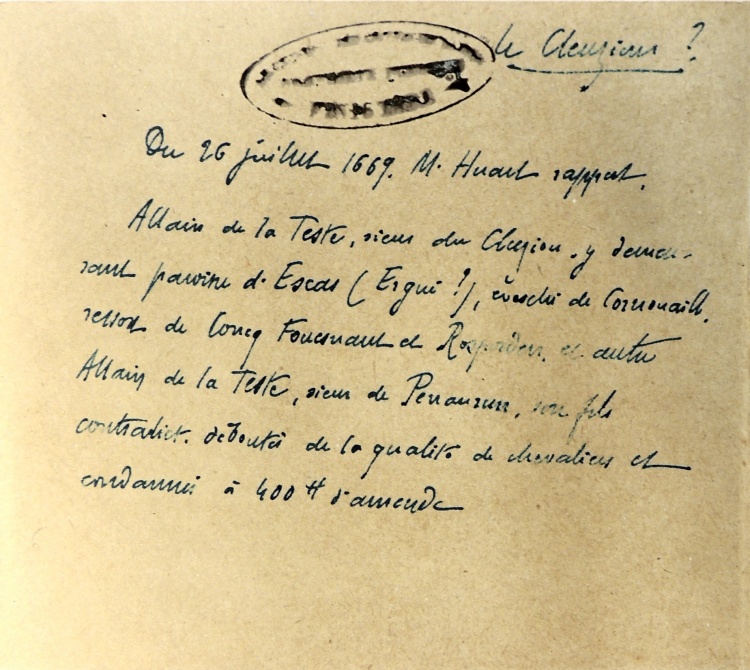 le Cleuziou ?
Du 26 juillet 1669. M. Huart rapport.
Allain de la Teste, sieur du Cleuziou, y demeu-
rant paroisse d'Escas (Ergué ?), évesché de Cornouaill.
ressort de Concq Fouesnant et Rosporden, et autre
Allain de la Teste, sieur de , son fils
contradict. déboutés de la qualité de chevaliers et
condamnés à 400 tt d'amende